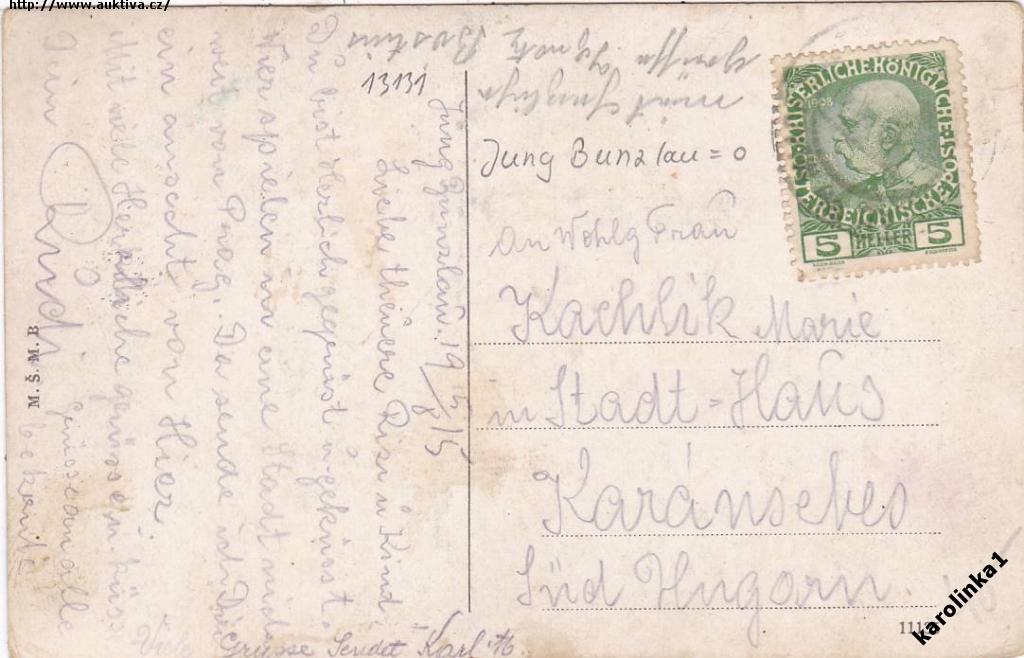 http://www.auktiva.cz/
13131
Jung Bunzlau = o
Jung Bunzlau. 19 15/8 15
Liebe theuere Risi u Kind
Du bist Herlich gegrüst u geküsst.
Wier spielen in eine Stadt nicht
weit von Prag. Da sende ich Dir
ein ansecht von Hier.
Mit viele Herzliche grüssen u. küss
Dein Rudi.
grüsse an alle
bekante
Viele Grüsse Sendet Karl
mit
Grüsse
KAISERLICHE KÖNIGLICHE
ÖSTERREICHISCHE POST
1908
5 HELLER 5
An Wohlg Frau
Kachlik Marie
in Stadt=Haus
Karánsebes
Süd Ungarn.
M. Š. M. B
karolinka1